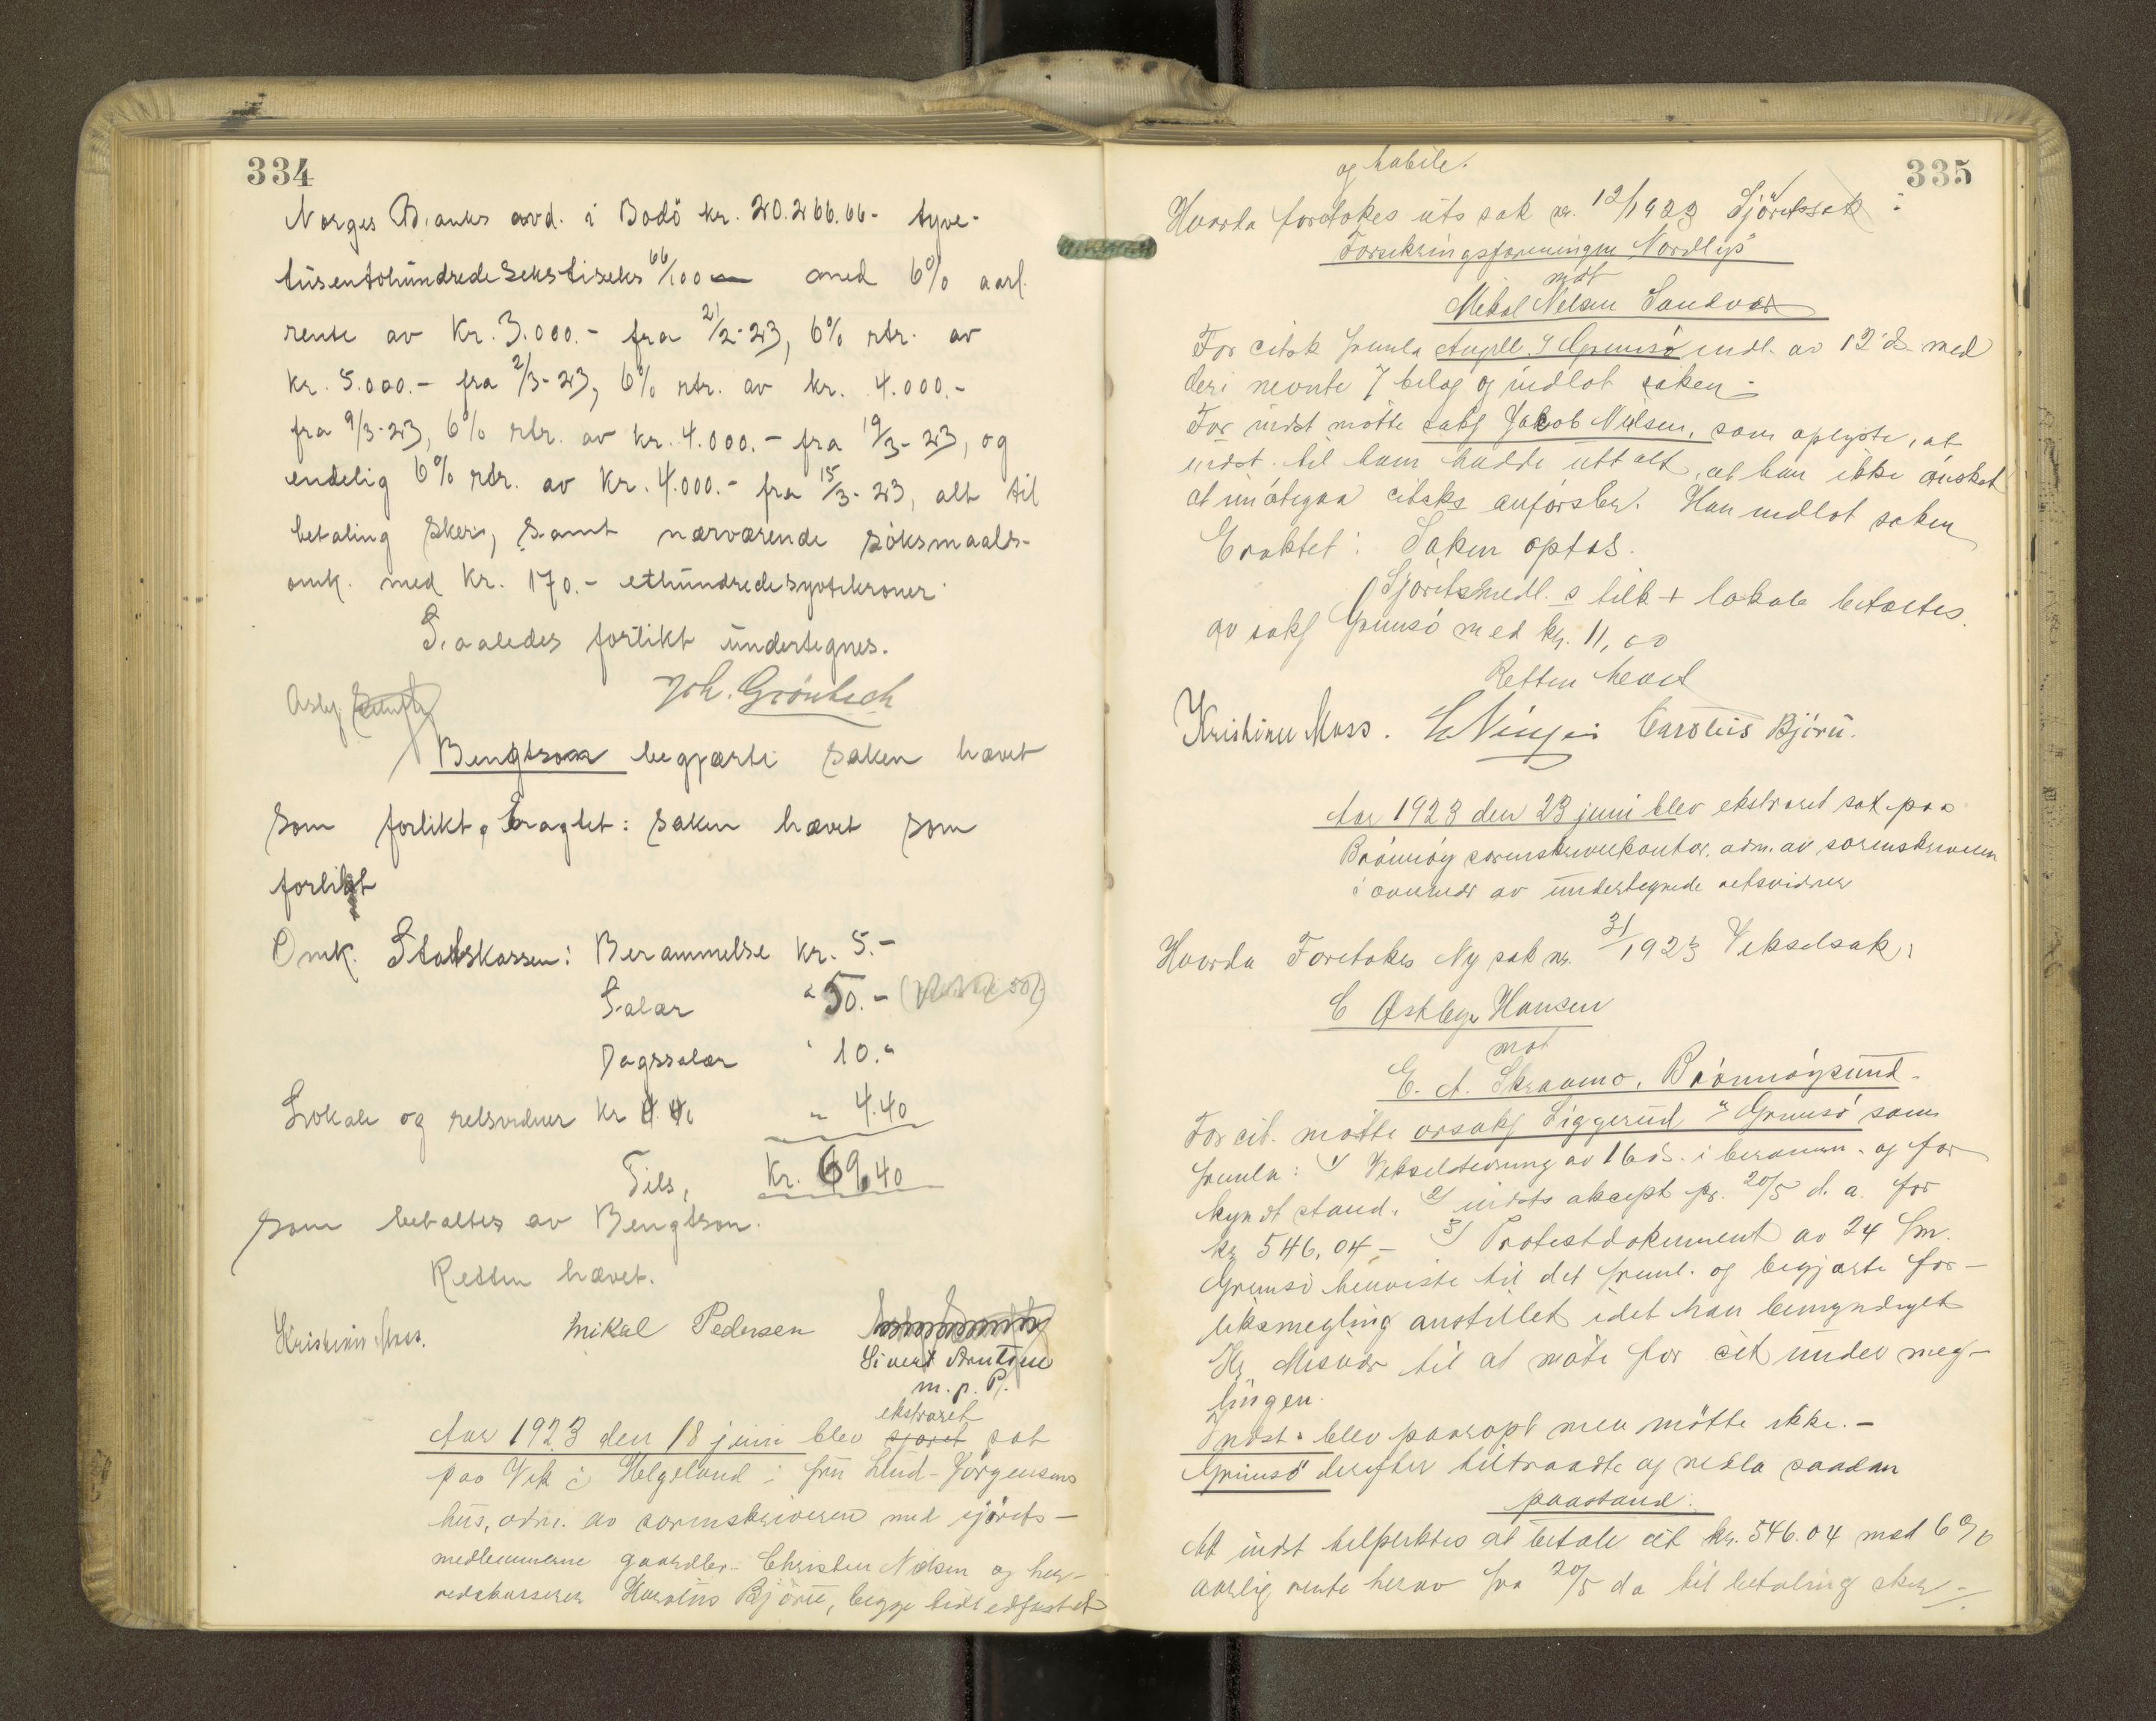 334
Norges Banks avd. i Bodö kr. 20.266.66 - tyve-
tusentohundredesekstiseks 66/100 — med 6% aarl.
rente av kr. 3.000.- fra 21/2-23, 6% rtr. av
kr. 5.000.- fra 2/3-23, 6% rtr. av kr. 4.000.-
fra 9/3-23, 6% rtr. av kr. 4.000.- fra 19/3-23, og
endelig 6% rtr. av kr. 4.000.- fra 15/3-23, alt til
betaling sker, samt nærværende söksmaals-
omk. med kr. 170.- ethundredesyttikroner.
Saaledes forlikt undertegnes.
Joh. Grönbech
Bengtson begjærte saken hævet
som forlikt, Eragtet: saken hævet som
forlikt
Omk. Statskassen: Berammelse kr. 5.-
Salær " 50.-
Dagssalær " 10."
Lokale og retsvidner kr 4.40 " 4.40
Tils, kr. 69.40
som betaltes av Bengtson.
Retten hævet.
Kristinn Moss. Mikal Pedersen
Sivert
m. p. P.
ekstraret
Aar 1923 den 18 juni blev sjøret sat
paa Vik i Helgeland i fru Lund-Jörgensens
hus, adm. av sorenskriveren med sjörets-
medlemmerne gaardbr. Christen Nilsen og her-
redskasserer Karolius Björu, begge tidl edfæstet
335
og habile.
Hvorda foretokes uts sak nr. 12/1923 Sjöretssak:
Forsikringsforeningen "Nordlys"
mot
Mikal Nilsen Sandvær
For citsk fremla Aufll. Grimsö indl. av 12 ds. med
deri nevnte 7 bilag og indlot saken.-
For indst mötte sakf Jacob Nilsen, som oplyste, at
indst. til ham hadde uttalt, at han ikke önsket
at imötegaa citsks anförsler. Han indlot saken
Eraktet: Saken optas.
Sjöretsmedl.s tilk + lokale betaltes
av sakf Grimsö med kr. 11,00
Retten hævet
Kristinn Moss. Carolius Björu.
Aar 1923 den 23 juni blev ekstraret sat paa
Brönnöy sorenskriverkontor, adm. av sorenskriveren
i overvær av undertegnede retsvidner
Hvorda Foretokes Ny sak nr. 31/1923 Vekselsak:
C Østbye Hansen
mot
E. A. Skraamo, Brönnöysund.
For cit. mötte orsakf Siggerud v/ Grimsö som
fremla: 1/ Vekselstevning av 16 ds. i beramm. og for-
kyndt stand. 2/ indsts aksept pr. 20/5 d. a. for
kr 546,04,- 3/ Protestdokument av 24 f.m.
Grimsö henviste til det freml. og begjærte for-
liksmegling anstillet idet han bemyndiget
Hr. Misvær til at möte for cit under meg-
lingen.
Indst. blev paaropt men mötte ikke.-
Grimsö derefter tiltraadte og nedla saadan
paastand:
At indst tilpliktes at betale cit kr. 546.04 med 6%
aarlig rente herav fra 20/5 d a til betaling sker -